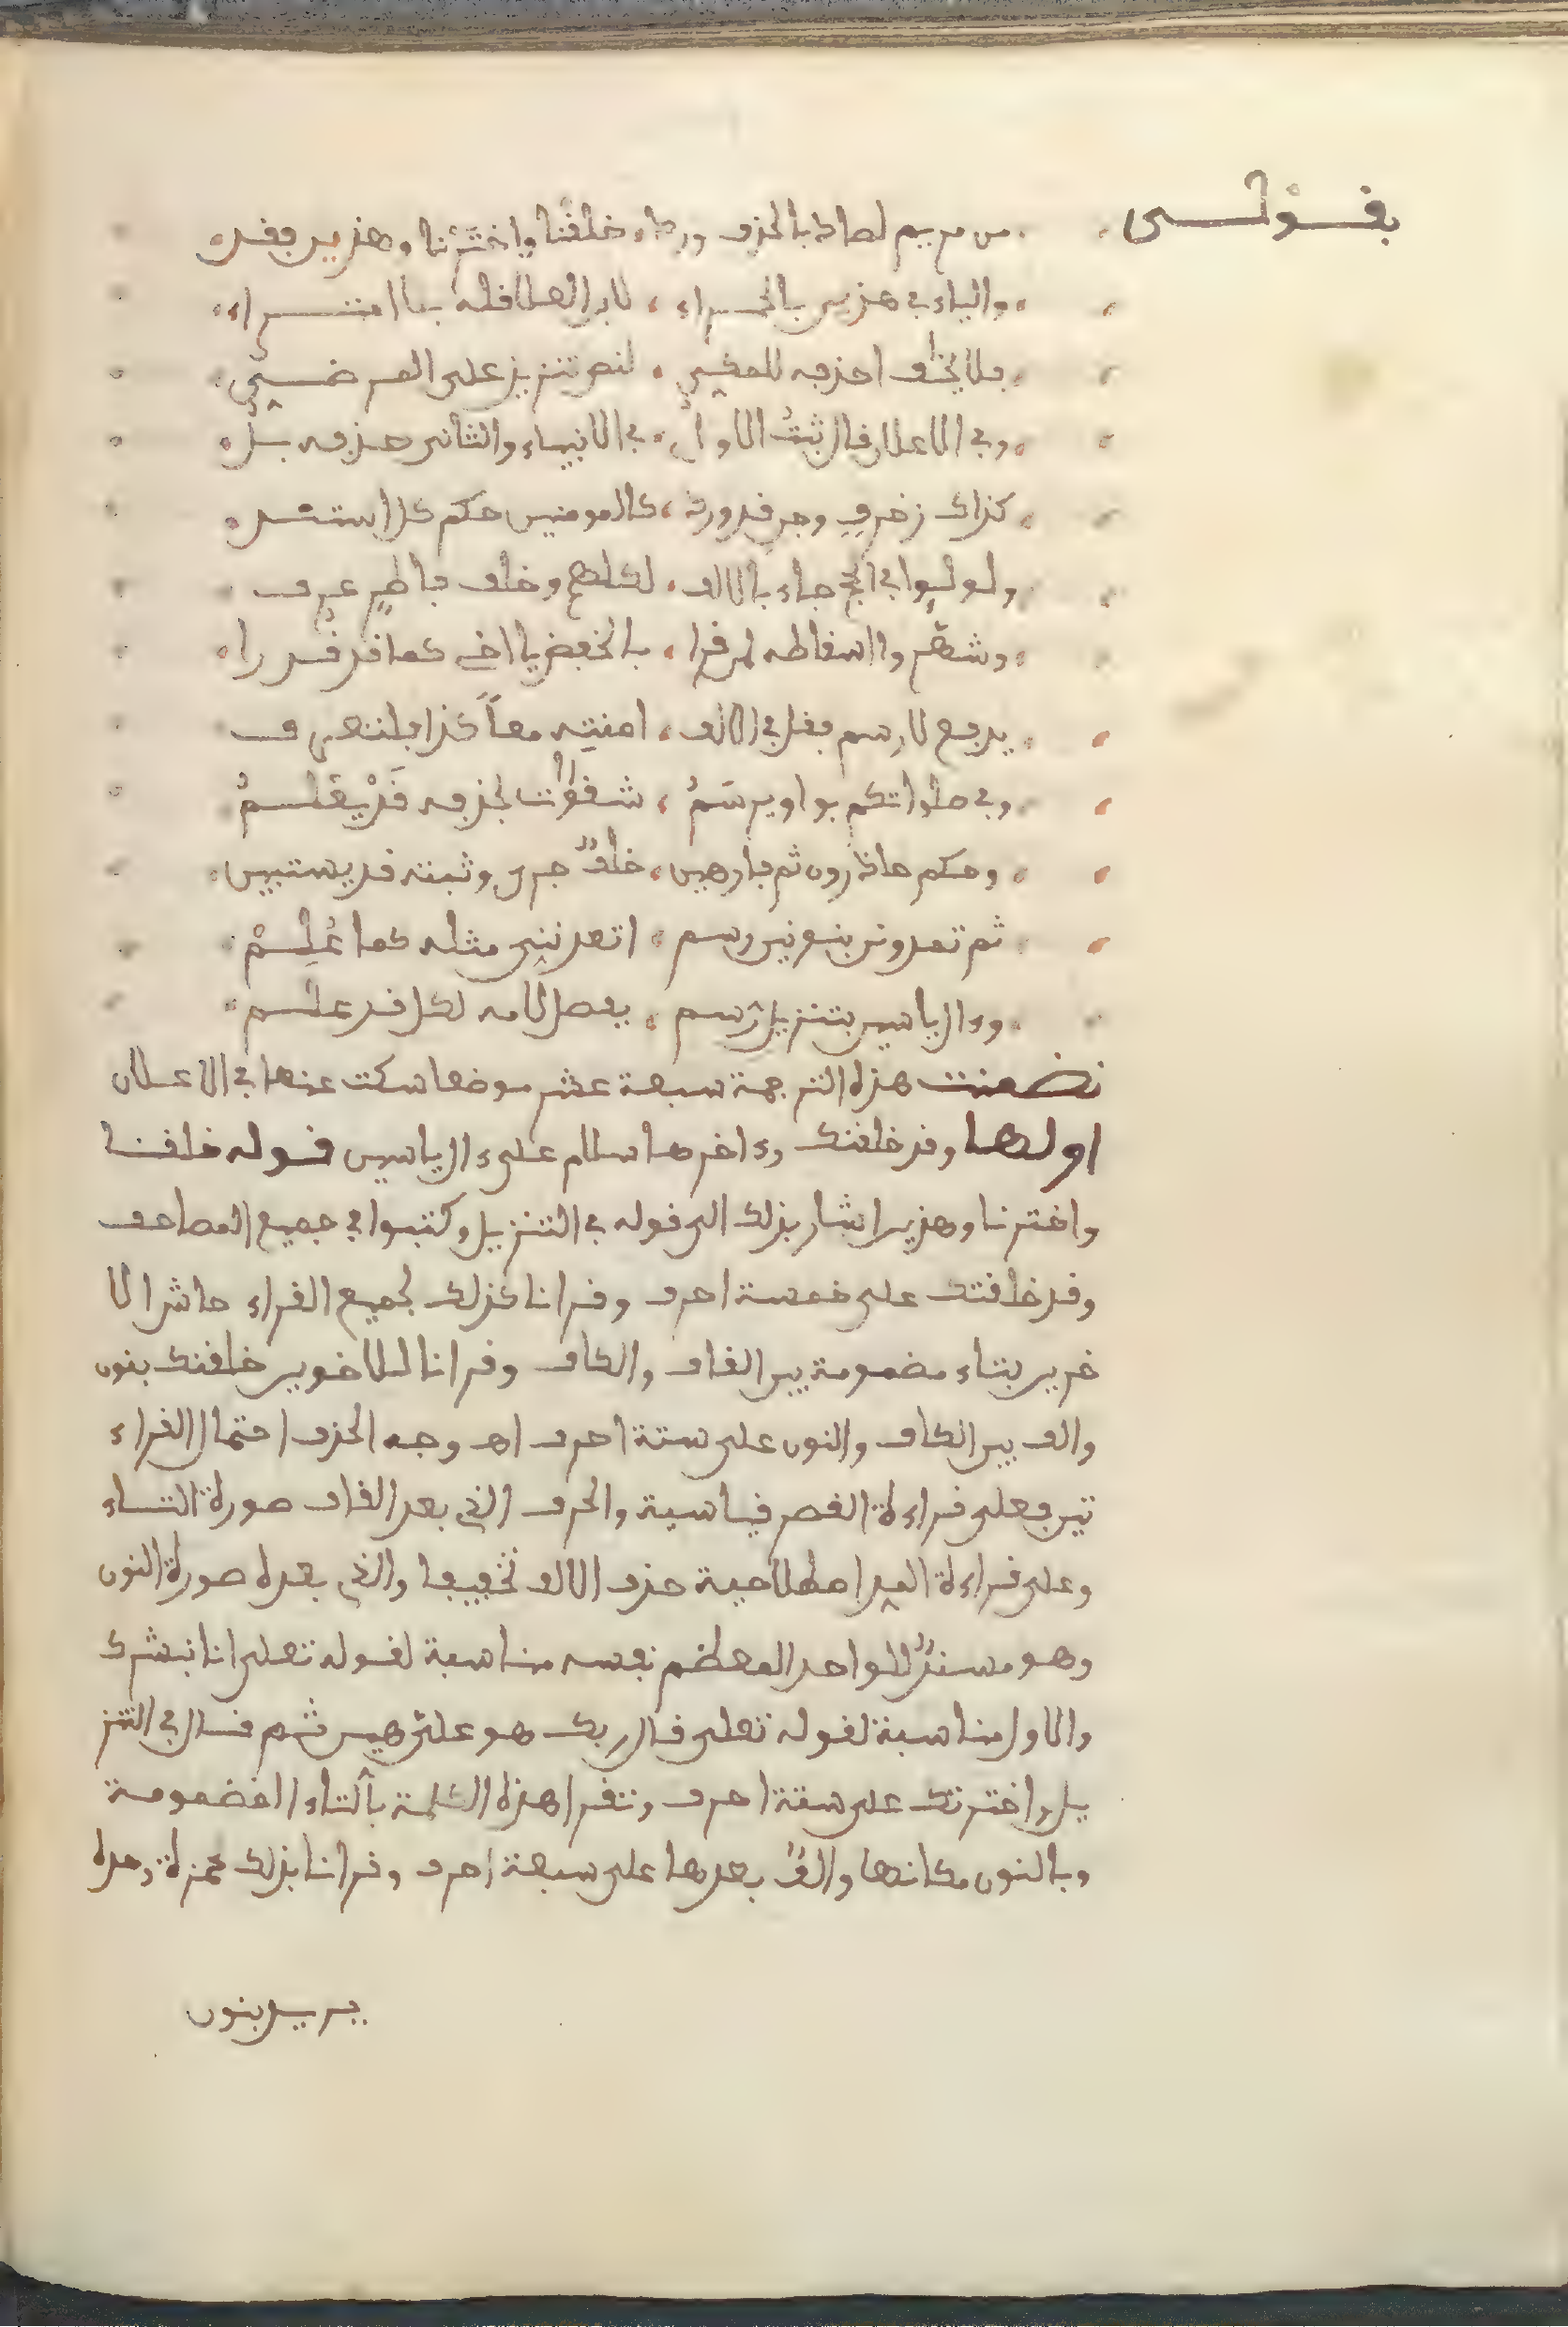 بفولى
من مريم لصاد بالحذف ورد خلفنا واخترنا وهذين فقد
والياء في هذين بالحمراء لابن العلا قله بلا امتراء
بلا يخلف احذفه للمفسى لنص تنزيل على المرضيى
وفي الاعلان قال ثبت الاول في الانبياء والثاني حذفه بل
كذاك زخرف وجن قد ورد كالمومنين حكم كل استند
ولولوا في الحج جاء بالالف لكلهم وخلف فاطر عرف
وشهر وا اسقاطه لمن قرا بالخفض يا اخي كما قد قررا
يرجع لا رسم فقل في الالف امنته معا كذا فلتعرف
وفي صلواتكم بواو يرسم شقوت بحذفه قد يعلم
وحكم حاذرون ثم فارهين خلف جرى وثبته قد يستبين
ثم تمدونن بنونين رسم اتعدنني مثله كما علم
وءال ياسين بتنزيل رسم بفصل لامه لكل قد علم
تضمنت هذه الترجمة سبعة عشر موضعا سكت عنها في الاعلان
اولها وقد خلقتك وءاخرها سلام على ءال ياسين قوله خلفنا
واخترنا وهذين اشار بذلك الى قوله في التنزيل وكتبوا في جميع المصاحف
وقد خلقتك على خمسة احرف وقرانا كذلك لجميع القراء حاشا الا
خوين بتاء مضمومة بين القاف والكاف وقرانا للاخوين خلقنك بنون
والف بين الكاف والنون على ستة احرف اهـ وجه الحذف احتمال القراء
تين فعلى قراءة القصر قياسية والحرف الذي بعد القاف صورة التاء
وعلى قراءة المد اصطلاحية حذف الالف تخفيفا والذي بعده صورة النون
وهو مسند للواحد المعظم نفسه مناسبة لقوله تعلى انا نبشرك
والاول مناسبة لقوله تعلى قال ربك هو على هين ثم قال في التنز
يل واخترتك على ستة احرف وتقرا هذه الكلمة بالتاء المضمومة
وبالنون مكانها والف بعدها على سبعة احرف وقرانا بذلك لحمزة وحده
يريد بنون